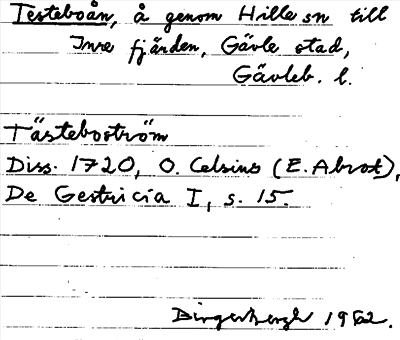 Testeboån, å genom Hille sn till
Inre fjärden, Gävle stad,
Gävleb. l.
Tästeboström
Diss. 1720, O. Celsius (E. Abrot),
De Gestricia I, s. 15.
1962.